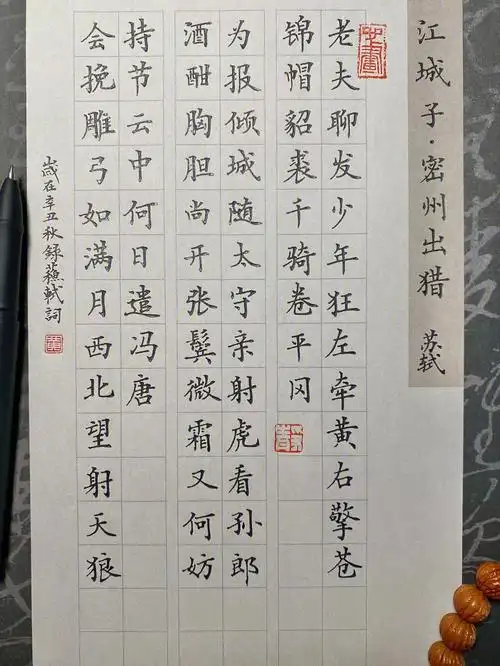 江城子·密州出猎 苏轼
老夫聊发少年狂左牵黄右擎苍
锦帽貂裘千骑卷平冈
为报倾城随太守亲射虎看孙郎
酒酣胸胆尚开张鬓微霜又何妨
持节云中何日遣冯唐
会挽雕弓如满月西北望射天狼
歲在辛丑秋録蘓軾詞